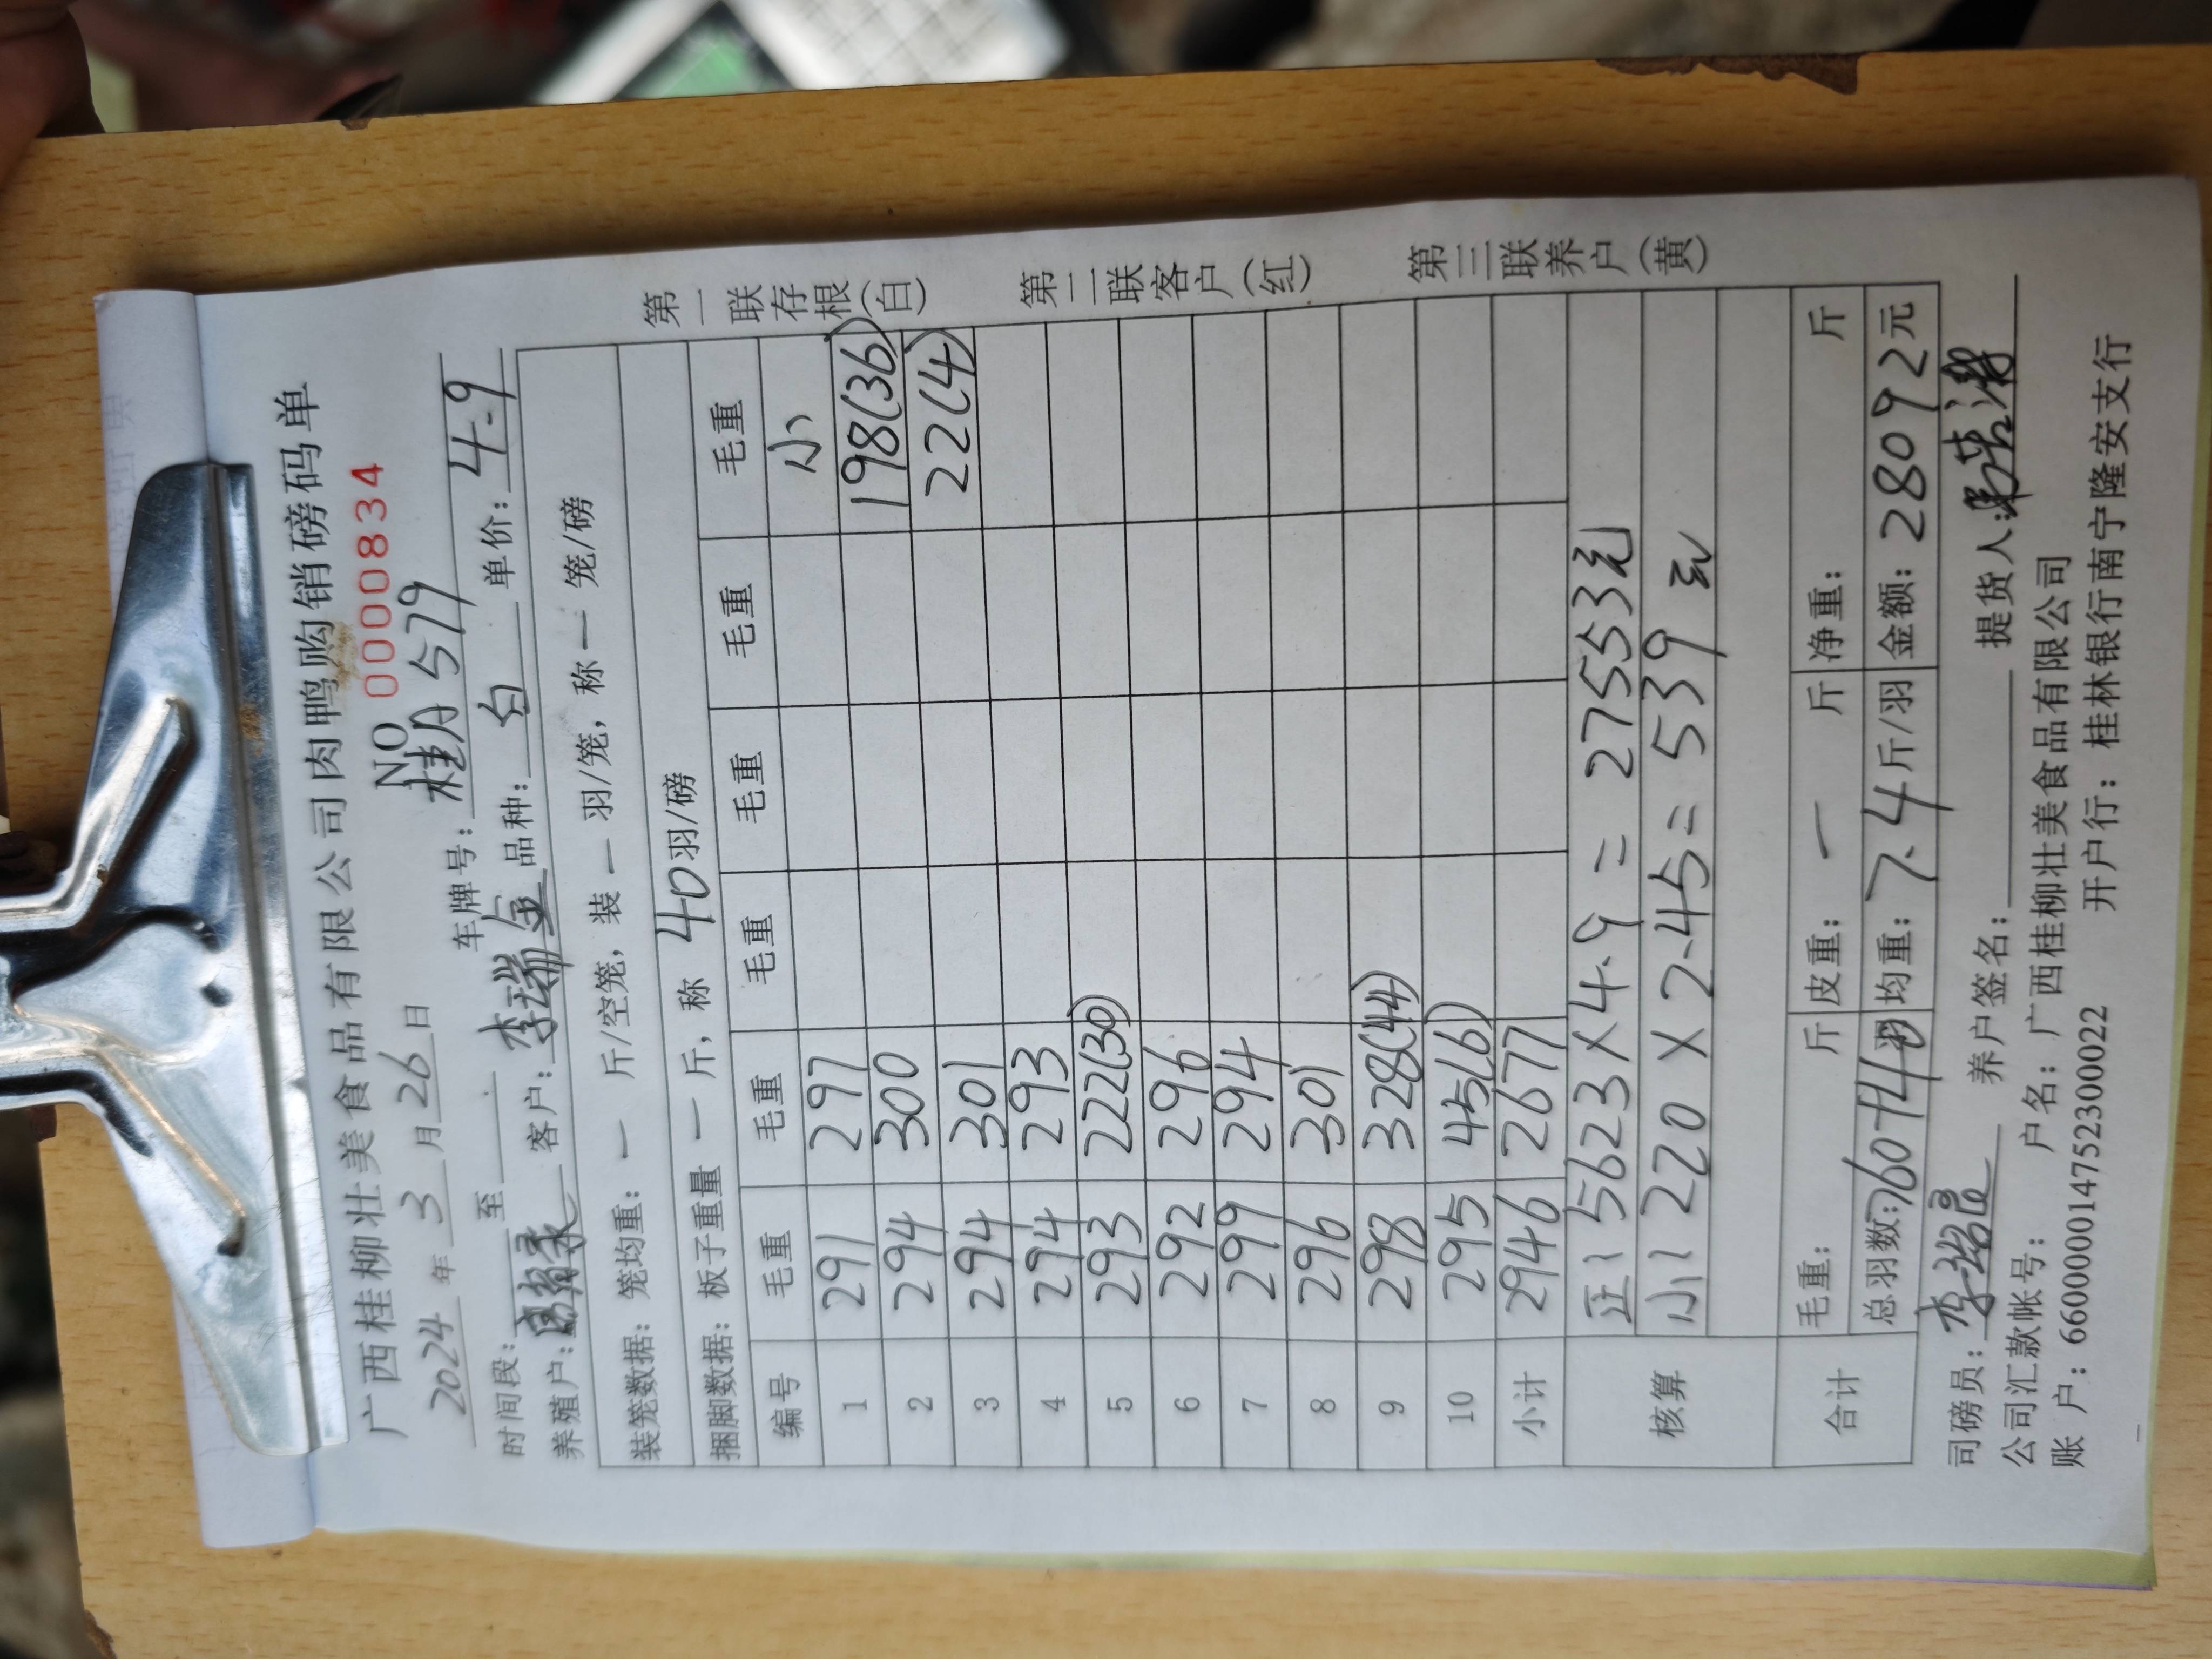 广西桂柳壮美食品有限公司肉鸭购销磅码单
2024年3月26日 NO 0000834
时间段: 至 车牌号: 桂A 579
养殖户: 客户: 李瑞金 品种: 白 单价: 4.9
装笼数据: 笼均重: 一 斤/空笼, 装 一 羽/笼, 称 一 笼/磅
捆脚数据: 板子重量 一 斤, 称 40羽/磅
编号 毛重 毛重 毛重 毛重 毛重 毛重
1 291 297 小
2 294 300 198(36)
3 294 301 22(4)
4 294 293
5 293 222(30)
6 292 296
7 299 294
8 296 301
9 298 328(44)
10 295 45(6)
小计 2946 2677
核算 正 5623×4.9 = 27553元
小 220×2.45= 539元
合计 毛重: 斤 皮重: 一 斤 净重: 斤
总羽数: 760+4羽 均重: 7.4斤/羽 金额: 28092元
司磅员: 养户签名: 提货人:
公司汇款帐号: 户名: 广西桂柳壮美食品有限公司
账 户: 660000014752300022 开户行: 桂林银行南宁隆安支行
第一联存根(白)
第二联客户(红)
第三联养户(黄)